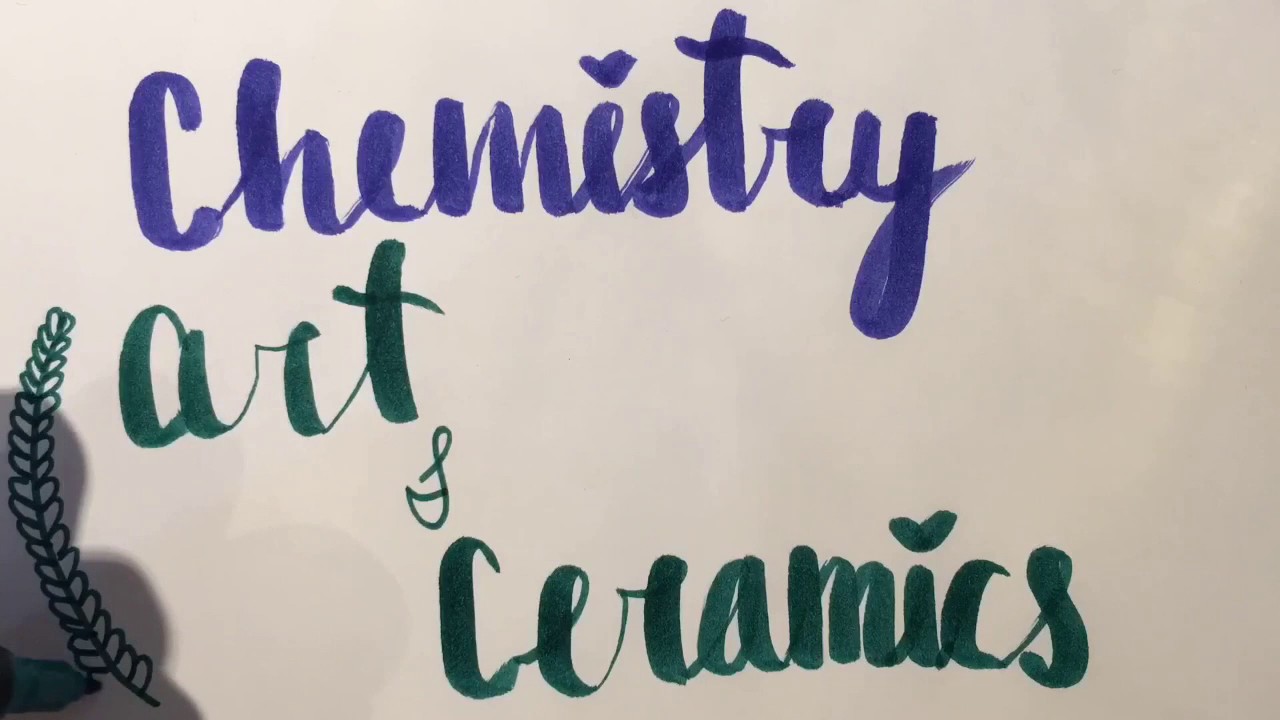 Chemistry
art
&
Ceramics